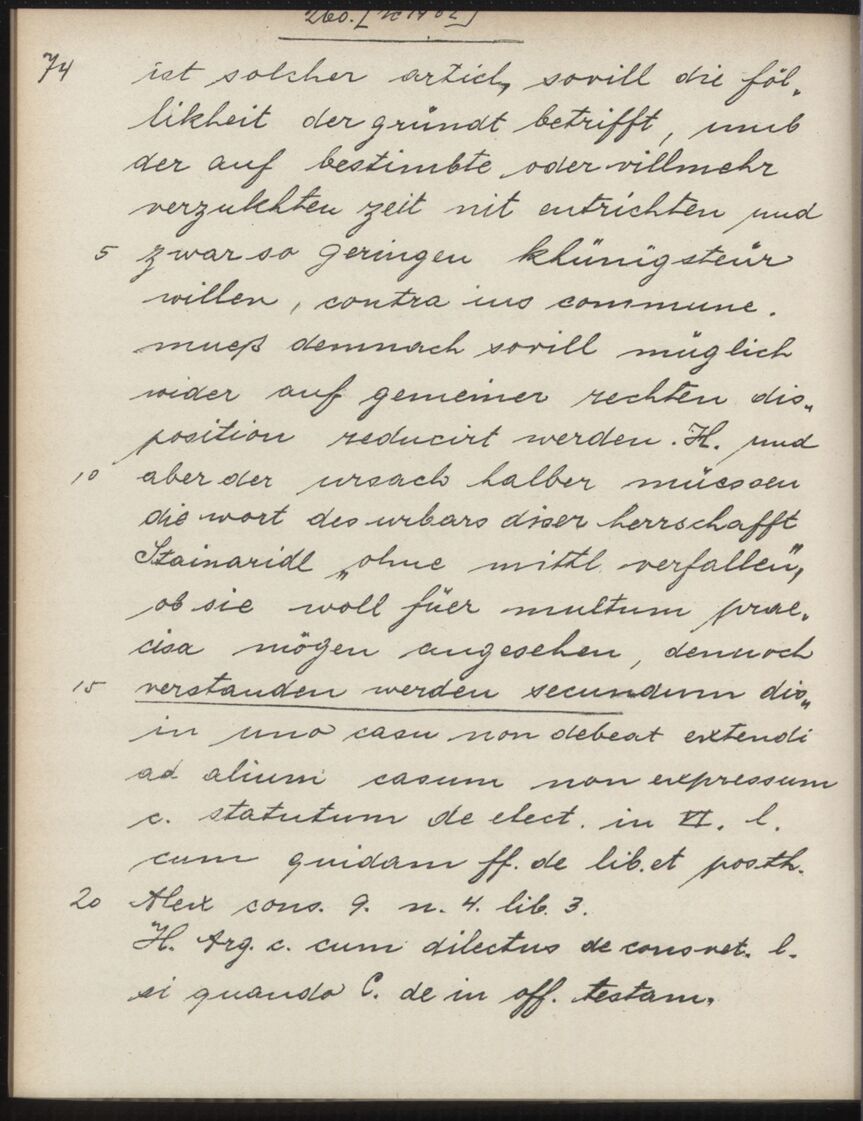 260. [
74 ist solcher articl, sovill die föl„
likheit der gründt betrifft, umb
der auf bestimbte oder villmehr
verzukhten zeit nit entrichten und
5 zwar so geringen khünigsteür
willen, contra ius commune.
mueß demnach sovill müglich
wider auf gemeiner rechten dis„
position reducirt werden. H. und
10 aber der ursach halber müessen
die wort des urbars diser herrschafft
Stainaridl „ohne mittl verfallen",
ob sie woll füer multum prae„
cisa mögen angesehen, dennoch
15 verstanden werden secundum dis„
in uno casu non debeat extendi
ad alium casum non expressum
c. statutum de elect. in VI. l.
cum quidam ff. de lib. et posth.
20 Alex cons. 9. n. 4. lib. 3.
H. Arg. c. cum dilectus de consvet. l.
si quando C. de in off. testam.